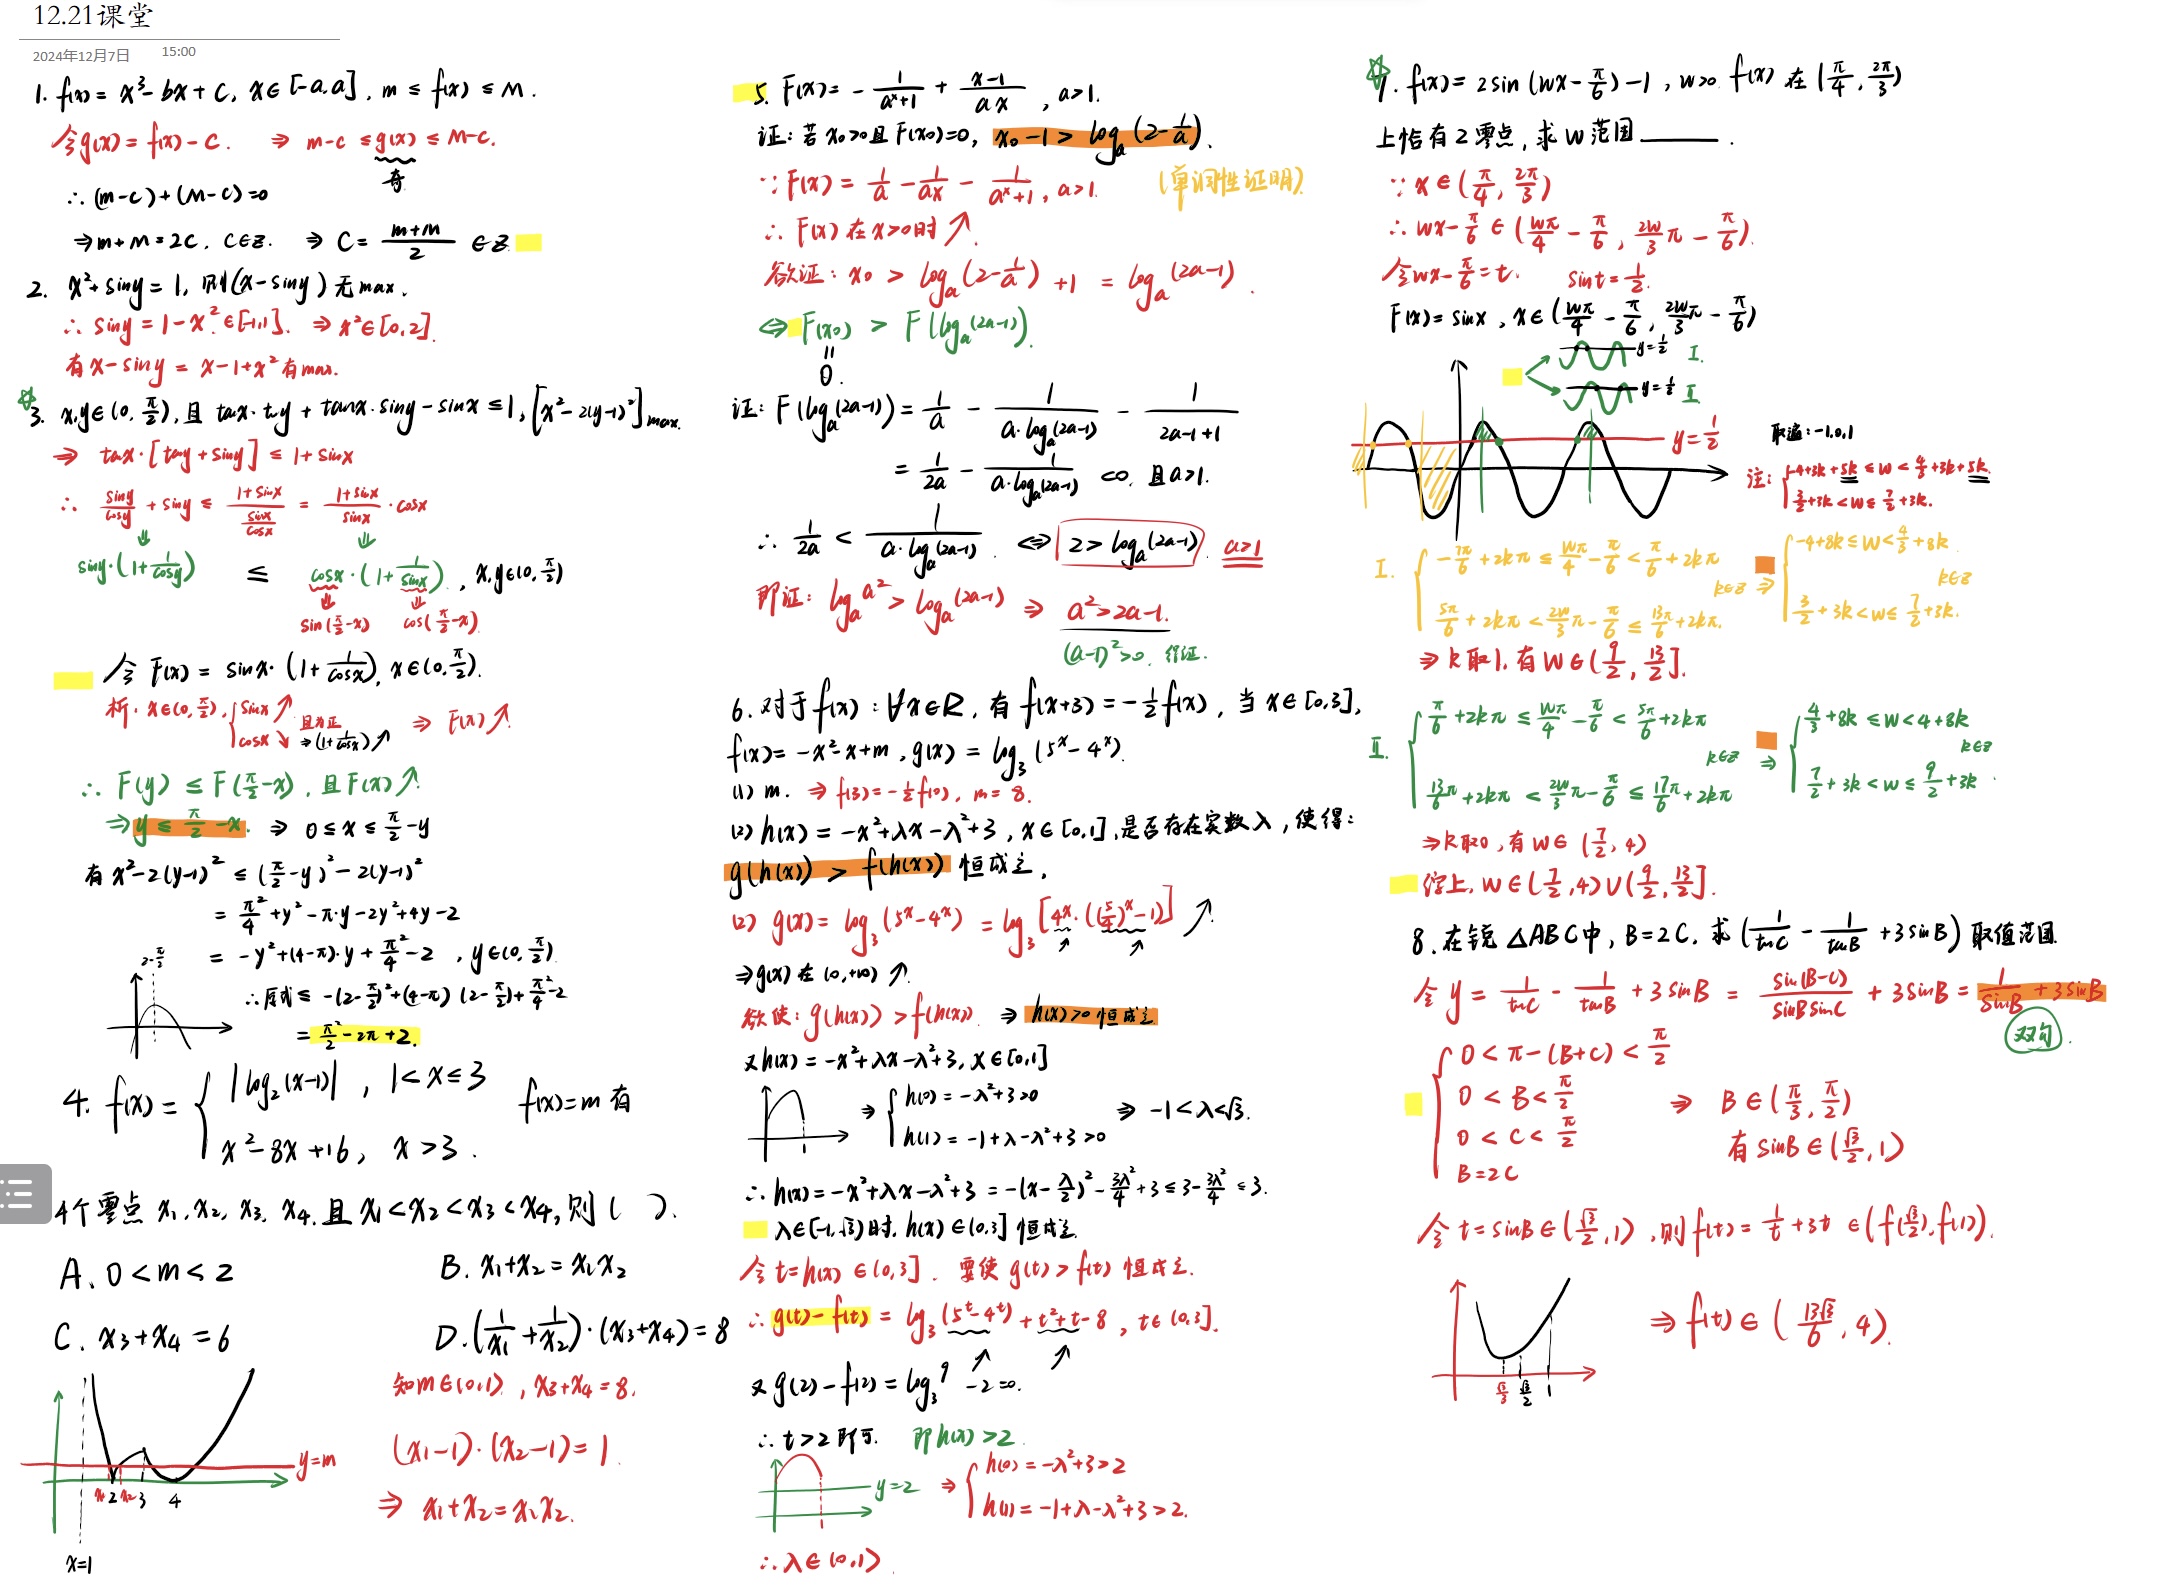 12.21课堂
2024年12月7日 15:00
1. f(x) = x³ - bx + c, x∈[-a,a], m ≤ f(x) ≤ M.
令g(x) = f(x) - c. ⇒ m-c ≤ g(x) ≤ M-c.
奇
∴ (m-c)+(M-c)=0
⇒ m+M=2c, c∈Z. ⇒ c = (m+M)/2 ∈Z.
2. x²+siny=1, 则(x-siny)无max.
∴ siny = 1-x² ∈[-1,1]. ⇒ x²∈[0,2].
有 x-siny = x-1+x² 有max.
3. x,y∈(0, π/2), 且 tanx·tany + tanx·siny - sinx ≤ 1, [x²-2(y-1)²]max.
⇒ tanx·[tany+siny] ≤ 1+sinx
∴ siny/cosy + siny ≤ (1+sinx)/(sinx/cosx) = (1+sinx)/sinx · cosx
⇓ ⇓
siny·(1+1/cosy) ≤ cosx·(1+1/sinx), x,y∈(0, π/2)
⇓ ⇓
sin(π/2-x) cos(π/2-x)
令 F(x) = sinx·(1+1/cosx), x∈(0, π/2).
析. x∈(0, π/2), { sinx↗ cosx↘ 且为正 ⇒(1+1/cosx)↗ ⇒ F(x)↗.
∴ F(y) ≤ F(π/2-x), 且F(x)↗.
⇒ y ≤ π/2-x. ⇒ 0≤x≤π/2-y
有 x²-2(y-1)² ≤ (π/2-y)²-2(y-1)²
= π²/4+y²-π·y-2y²+4y-2
= -y²+(4-π)·y+π²/4-2, y∈(0, π/2).
2-π/2
∴原式 ≤ -(2-π/2)²+(4-π)(2-π/2)+π²/4-2
= π²/2-2π+2.
4. f(x) = { |log₂(x-1)|, 1<x≤3
x²-8x+16, x>3. f(x)=m 有
4个零点 x₁, x₂, x₃, x₄. 且 x₁<x₂<x₃<x₄, 则( ).
A. 0<m<2 B. x₁+x₂=x₁x₂
C. x₃+x₄=6 D. (1/x₁+1/x₂)·(x₃+x₄)=8
知m∈(0,1), x₃+x₄=8.
(x₁-1)·(x₂-1)=1.
⇒ x₁+x₂=x₁x₂.
y=m
x₁ 2 x₂ 3 4
x=1
5. F(x) = -1/(aˣ+1) + (x-1)/(ax), a>1.
证: 若x₀>0且F(x₀)=0, x₀-1 > logₐ(2-1/a).
∵ F(x) = 1/a - 1/(ax) - 1/(aˣ+1), a>1. (单调性证明)
∴ F(x) 在x>0时↗.
欲证: x₀ > logₐ(2-1/a)+1 = logₐ(2a-1).
⇔ F(x₀) > F(logₐ(2a-1)).
=
0.
证: F(logₐ(2a-1)) = 1/a - 1/(a·logₐ(2a-1)) - 1/(2a-1+1)
= 1/(2a) - 1/(a·logₐ(2a-1)) <0, 且a>1.
∴ 1/(2a) < 1/(a·logₐ(2a-1)). ⇔ 2>logₐ(2a-1). a>1
即证: logₐa² > logₐ(2a-1) ⇒ a²>2a-1.
(a-1)²>0. 得证.
6. 对于f(x): ∀x∈R, 有f(x+3)=-1/2f(x), 当x∈[0,3],
f(x)=-x²-x+m, g(x)=log₃(5ˣ-4ˣ).
(1) m. ⇒ f(3)=-1/2f(0), m=8.
(2) h(x)=-x²+λx-λ²+3, x∈[0,1], 是否存在实数λ, 使得:
g(h(x)) > f(h(x)) 恒成立.
(2) g(x) = log₃(5ˣ-4ˣ) = log₃[4ˣ·((5/4)ˣ-1)] ↗.
⇒ g(x)在(0,+∞)↗.
欲使: g(h(x))>f(h(x)). ⇒ h(x)>0恒成立
又h(x)=-x²+λx-λ²+3, x∈[0,1]
⇒ { h(0)=-λ²+3>0
h(1)=-1+λ-λ²+3>0 ⇒ -1<λ<√3.
1
∴ h(x)=-x²+λx-λ²+3=-(x-λ/2)²-3λ²/4+3≤3-3λ²/4≤3.
λ∈[-1,√3)时. h(x)∈(0,3]恒成立.
令t=h(x)∈(0,3]. 要使g(t)>f(t)恒成立.
∴ g(t)-f(t) = log₃(5ᵗ-4ᵗ)+t²+t-8, t∈(0,3].
又g(2)-f(2)=log₃9-2=0.
∴ t>2即可. 即h(x)>2.
y=2 ⇒ { h(0)=-λ²+3>2
h(1)=-1+λ-λ²+3>2.
1
∴ λ∈(0,1).
7. f(x)=2sin(wx-π/6)-1, w>0. f(x)在(π/4, 2π/3)
上恰有2零点, 求w范围____.
∵ x∈(π/4, 2π/3)
∴ wx-π/6∈(wπ/4-π/6, 2w/3π-π/6).
令wx-π/6=t. sint=1/2.
F(x)=sinx, x∈(wπ/4-π/6, 2w/3π-π/6)
y=1/2 I.
y=1/2 II.
y=1/2
取遍: -1,0,1
注: { -4+3k+5k≤w<4/3+3k+5k.
3/2+3k<w≤7/2+3k.
I. { -7π/6+2kπ≤wπ/4-π/6<π/6+2kπ
5π/6+2kπ<2w/3π-π/6≤13π/6+2kπ. k∈Z ⇒ { -4+8k≤w<4/3+8k
3/2+3k<w≤7/2+3k. k∈Z
⇒ k取1, 有w∈(9/2, 13/2].
II. { π/6+2kπ≤wπ/4-π/6<5π/6+2kπ
13π/6+2kπ<2w/3π-π/6≤17π/6+2kπ k∈Z ⇒ { 4/3+8k≤w<4+8k
7/2+3k<w≤9/2+3k. k∈Z
⇒ k取0, 有w∈(7/2, 4)
综上, w∈(7/2, 4)∪(9/2, 13/2].
8. 在锐△ABC中, B=2C, 求(1/tanC-1/tanB+3sinB)取值范围.
令y=1/tanC-1/tanB+3sinB=sin(B-C)/(sinBsinC)+3sinB=1/sinB+3sinB
双勾.
{ 0<π-(B+C)<π/2
0<B<π/2
0<C<π/2
B=2C
⇒ B∈(π/3, π/2)
有sinB∈(√3/2, 1)
令t=sinB∈(√3/2, 1), 则f(t)=1/t+3t∈(f(√3/2), f(1)).
⇒ f(t)∈(13√3/6, 4).
√3/3 √3/2 1